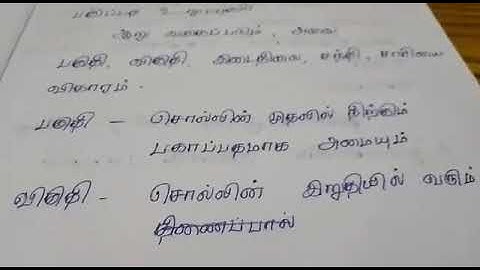 பகுபத உறுப்புகள்
ஆறு வகைப்படும், அவை
பகுதி, விகுதி, இடைநிலை, சந்தி, சாரியை
விகாரம்.
பகுதி – சொல்லின் முதலில் நிற்கும்
பகாப்பதமாக அமையும்
விகுதி – சொல்லின் இறுதியில் வரும்
திணைப்பால்